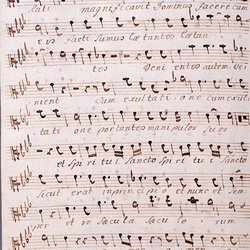 lati magnificavit Dominus facere cum
eis facti sumus laetantes laetan
tes Veni entes autem veni
nient cum exultati : one cum exul
tati one portantes manipulos suos
et spiritui Sancto Spiritui Sancto
Sicut erat in principio et nunc et sem
per et in saecula saeculo rum